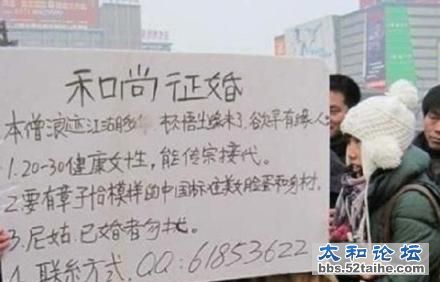 和尚征婚
本僧浪迹江湖 悟出缘来了,欲寻有缘人:
1.20-30健康女性,能传宗接代。
2.要有章子怡模样的中国标准美女脸蛋和身材.
3.尼姑.已婚者勿扰。
4.联系方式.QQ:61853622
太和论坛
bbs.52taihe.com